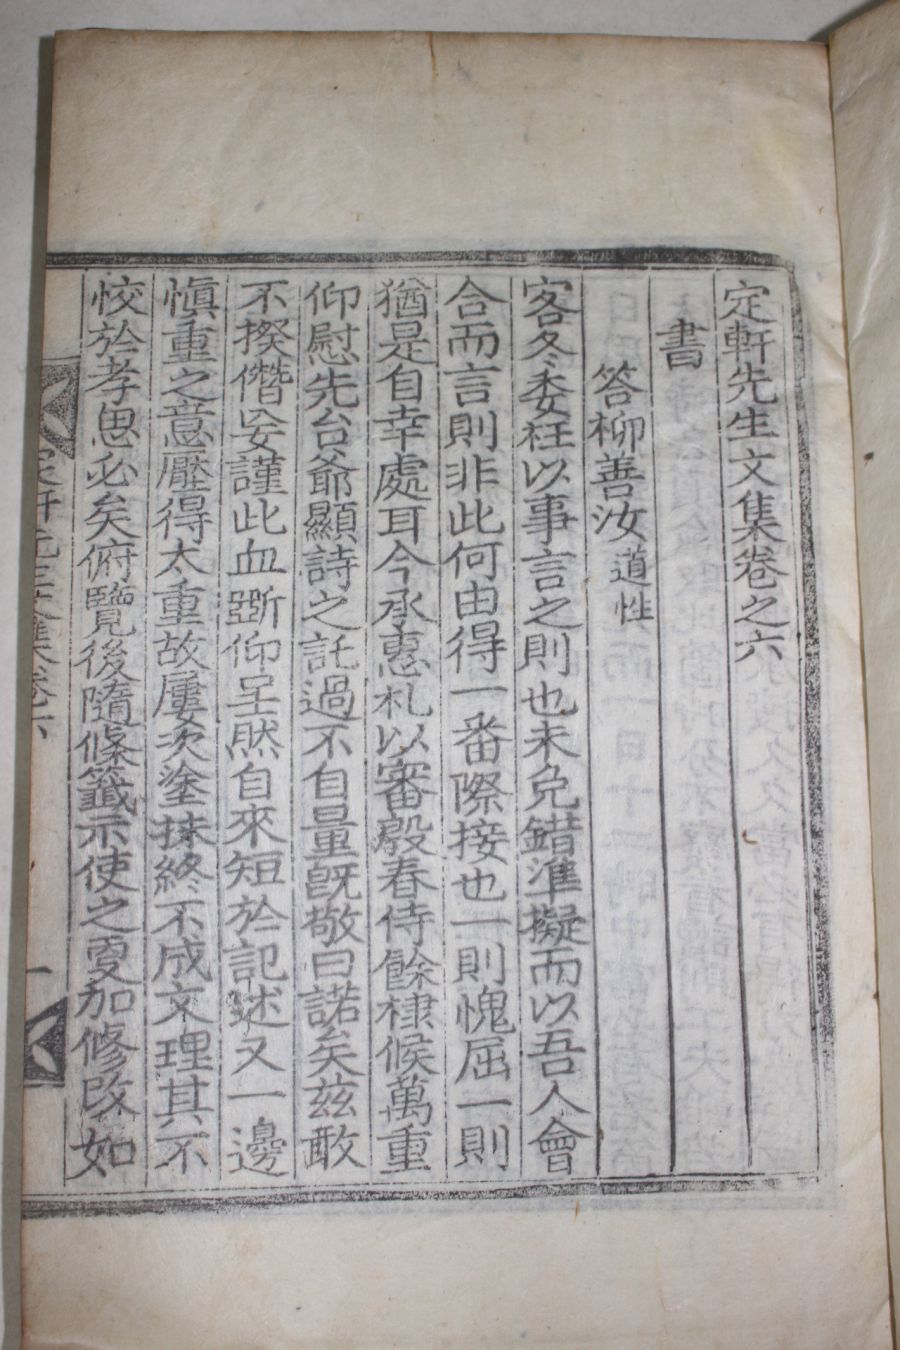 定軒先生文集卷之六
書
答柳善汝道性
客冬委枉以事言之則也未免錯準擬而以吾人會
合而言則非此何由得一番際接也一則愧屈一則
猶是自幸處耳今承惠札以審殷春侍餘棣候萬重
仰慰先台爺顯詩之託過不自量旣敬曰諾矣茲敢
不揆僭妄謹此血斲仰呈然自來短於記述又一邊
愼重之意壓得太重故屢次塗抹終不成文理其不
恔於孝思必矣俯覽後隨條籤示使之更加修改如
定軒先生文集卷六
一